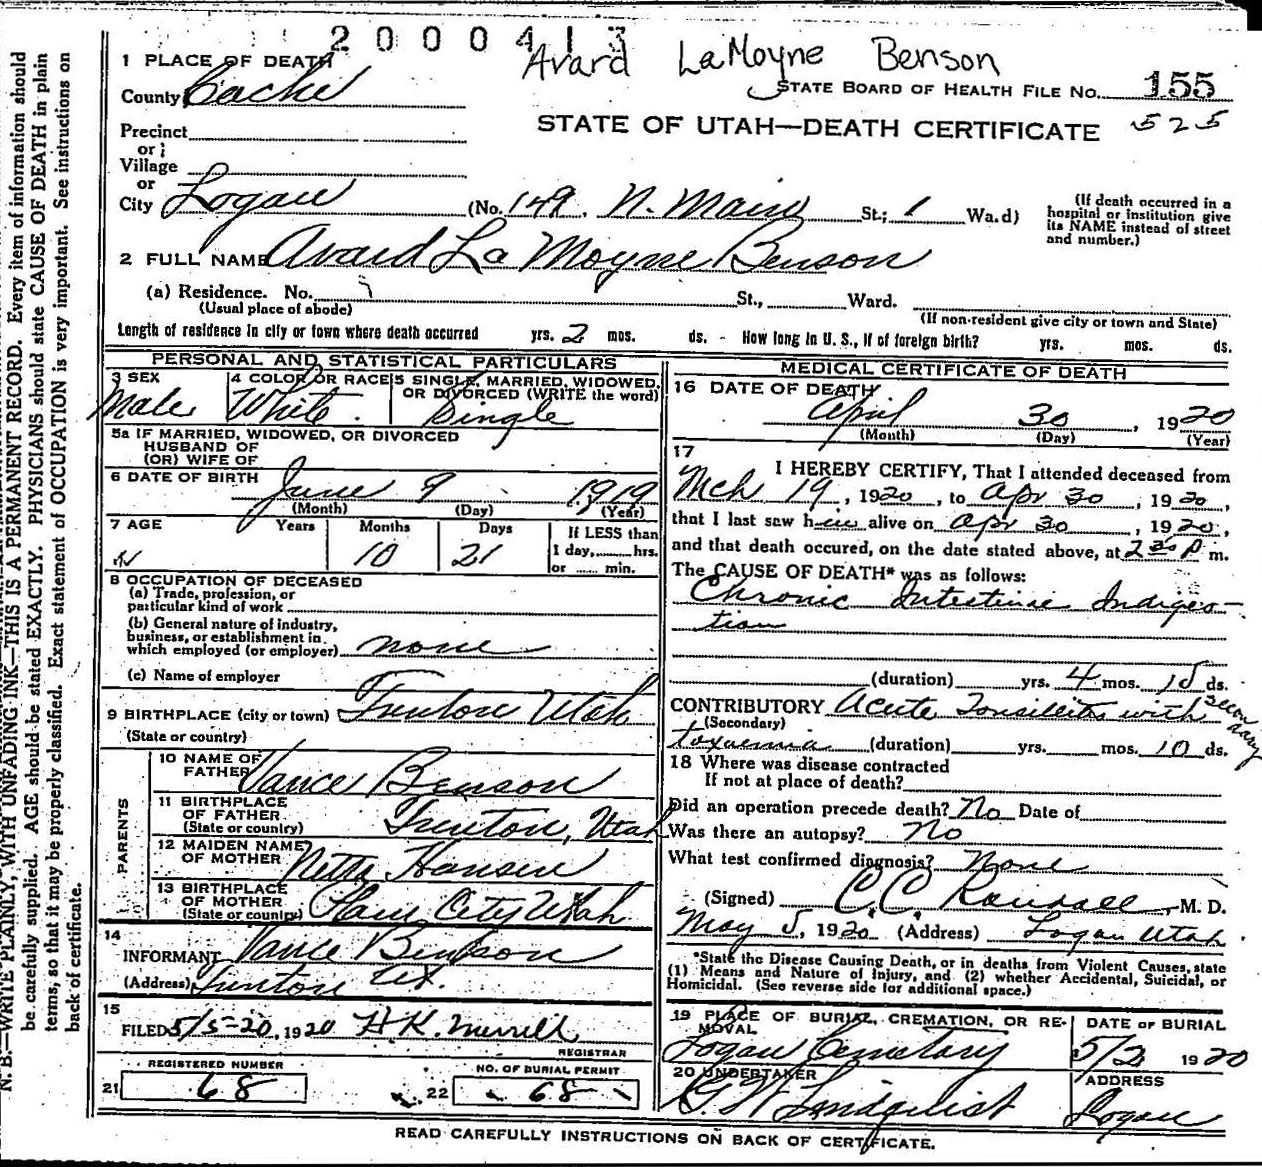 2000413
Avard LaMoyne Benson
1 PLACE OF DEATH
STATE BOARD OF HEALTH FILE NO. 155
County Cache
STATE OF UTAH—DEATH CERTIFICATE 525
Precinct
or
Village
or
City Logan (No. 149. N. Main St.; 1 Wa.d)
(If death occurred in a hospital or institution give its NAME instead of street and number.)
2 FULL NAME Avard La Moyne Benson
(a) Residence. No. St., Ward.
(Usual place of abode) (If non-resident give city or town and State)
Length of residence in city or town where death occurred yrs. 2 mos. ds. - How long in U. S., if of foreign birth? yrs. mos. ds.
PERSONAL AND STATISTICAL PARTICULARS
3 SEX 4 COLOR OR RACE 5 SINGLE, MARRIED, WIDOWED,
OR DIVORCED (WRITE the word)
Male White. Single
5a IF MARRIED, WIDOWED, OR DIVORCED
HUSBAND OF
(OR) WIFE OF
6 DATE OF BIRTH June 9 1919
(Month) (Day) (Year)
7 AGE Years Months Days If LESS than
10 21 1 day,......hrs.
or ...... min.
8 OCCUPATION OF DECEASED
(a) Trade, profession, or
particular kind of work
(b) General nature of industry,
business, or establishment in
which employed (or employer) none
(c) Name of employer
9 BIRTHPLACE (city or town) Trenton Utah
(State or country)
PARENTS
10 NAME OF
FATHER Vance Benson
11 BIRTHPLACE
OF FATHER
(State or country) Trenton, Utah
12 MAIDEN NAME
OF MOTHER Netta Hansen
13 BIRTHPLACE
OF MOTHER
(State or country) Plain City Utah
14
INFORMANT Vance Benson
(Address) Trenton Ut.
15
FILED 5/5-20, 1920 H K. Merrill
REGISTRAR
REGISTERED NUMBER NO. OF BURIAL PERMIT
21 68 22 68
MEDICAL CERTIFICATE OF DEATH
16 DATE OF DEATH
April 30, 1920
(Month) (Day) (Year)
17
I HEREBY CERTIFY, That I attended deceased from
Mch 19, 1920, to Apr 30, 1920,
that I last saw him alive on Apr 30, 1920,
and that death occured, on the date stated above, at 2 30 P m.
The CAUSE OF DEATH* was as follows:
Chronic Intestine Indiges-
tion
(duration) yrs. 4 mos. 15 ds.
CONTRIBUTORY Acute Tonsillitis with secondary
(Secondary)
toxaemia (duration) yrs. mos. 10 ds.
18 Where was disease contracted
If not at place of death?
Did an operation precede death? No Date of
Was there an autopsy? No
What test confirmed diagnosis? None
(Signed) C. C. Randall, M. D.
May 5, 1920 (Address) Logan Utah.
*State the Disease Causing Death, or in deaths from Violent Causes, state
(1) Means and Nature of Injury, and (2) whether Accidental, Suicidal, or
Homicidal. (See reverse side for additional space.)
19 PLACE OF BURIAL, CREMATION, OR RE-
MOVAL
DATE OF BURIAL
Logan Cemetary 5/2 1920
20 UNDERTAKER ADDRESS
G. W Lindquist Logan
READ CAREFULLY INSTRUCTIONS ON BACK OF CERTIFICATE.
N. B.—WRITE PLAINLY, WITH UNFADING INK—THIS IS A PERMANENT RECORD. Every item of information should
be carefully supplied. AGE should be stated EXACTLY. PHYSICIANS should state CAUSE OF DEATH in plain
terms, so that it may be properly classified. Exact statement of OCCUPATION is very important. See instructions on
back of certificate.